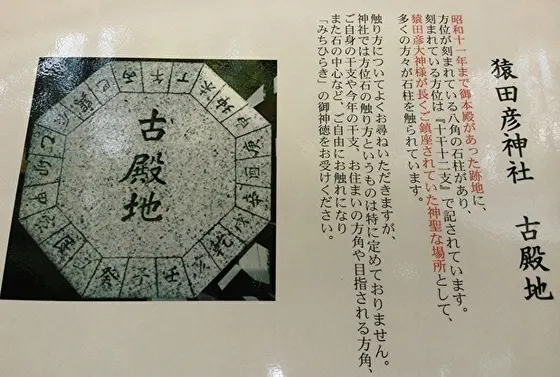 猿田彦神社　古殿地
昭和十一年まで御本殿があった跡地に、
方位が刻まれている八角の石柱があり、
刻まれている方位は『十干十二支』で記されています。
猿田彦大神様が長くご鎮座されていた神聖な場所として、
多くの方々が石柱を触られています。
触り方についてよくお尋ねいただきますが、
神社では方位石の触り方というものは特に定めておりません。
ご自身の干支や今年の干支、お住まいの方角や目指される方角、
また石の中心など、ご自由にお触れになり
「みちひらき」の御神徳をお受けください。
古殿地
巳 丙 午 丁 未 坤 申 庚 酉 辛 戌 乾 亥 壬 子 癸 丑 艮 寅 甲 卯 乙